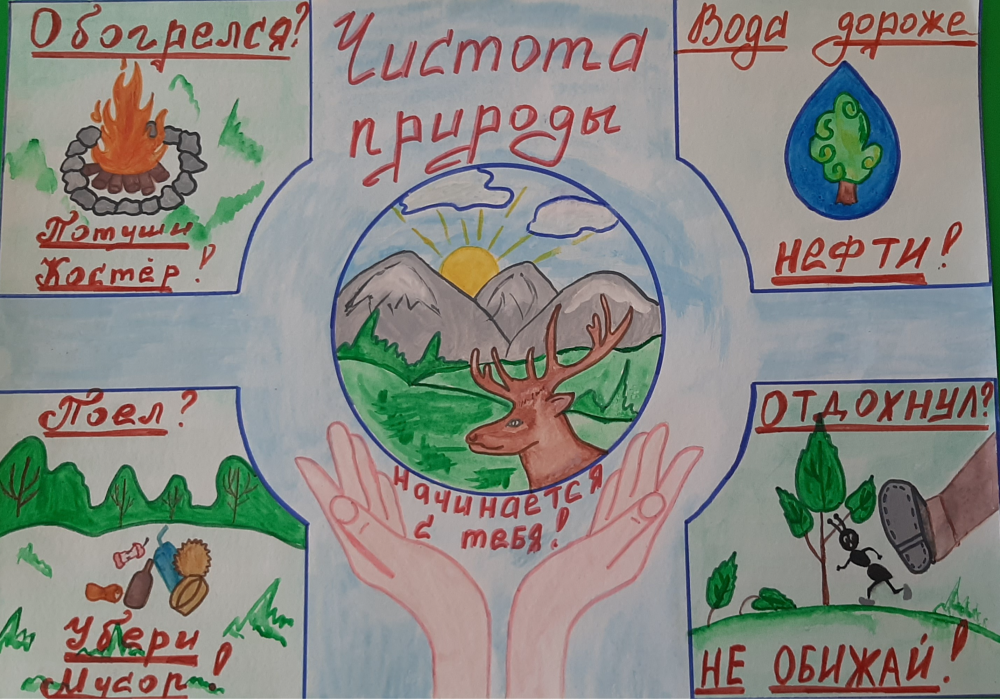 Обогрелся?
Потуши
Костёр!
Чистота
природы
начинается
с тебя!
Вода дороже
НЕФТИ!
Поел?
Убери
Мусор!
ОТДОХНУЛ?
НЕ ОБИЖАЙ!